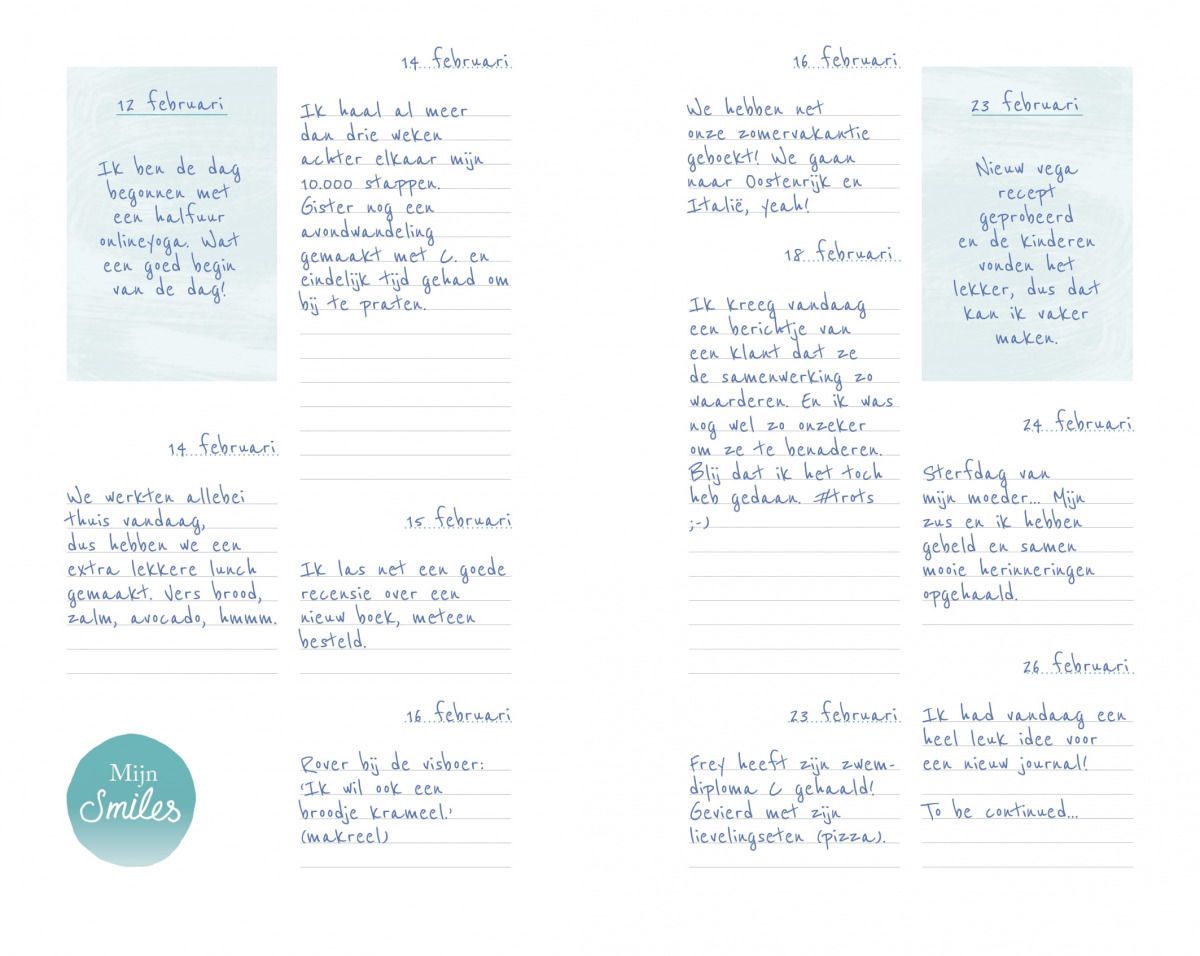 12 februari
Ik ben de dag
begonnen met
een halfuur
onlineyoga. Wat
een goed begin
van de dag!
14 februari
We werkten allebei
thuis vandaag,
dus hebben we een
extra lekkere lunch
gemaakt. Vers brood,
zalm, avocado, hmmm.
Mijn
Smiles
14 februari
Ik haal al meer
dan drie weken
achter elkaar mijn
10.000 stappen.
Gister nog een
avondwandeling
gemaakt met C. en
eindelijk tijd gehad om
bij te praten.
15 februari
Ik las net een goede
recensie over een
nieuw boek, meteen
besteld.
16 februari
Rover bij de visboer:
'Ik wil ook een
broodje krameel.'
(makreel)
16 februari
We hebben net
onze zomervakantie
geboekt! We gaan
naar Oostenrijk en
Italië, yeah!
18 februari
Ik kreeg vandaag
een berichtje van
een klant dat ze
de samenwerking zo
waarderen. En ik was
nog wel zo onzeker
om ze te benaderen.
Blij dat ik het toch
heb gedaan. #trots
;-)
23 februari
Frey heeft zijn zwem-
diploma C gehaald!
Gevierd met zijn
lievelingseten (pizza).
23 februari
Nieuw vega
recept
geprobeerd
en de kinderen
vonden het
lekker, dus dat
kan ik vaker
maken.
24 februari
Sterfdag van
mijn moeder... Mijn
zus en ik hebben
gebeld en samen
mooie herinneringen
opgehaald.
26 februari
Ik had vandaag een
heel leuk idee voor
een nieuw journal!
To be continued...